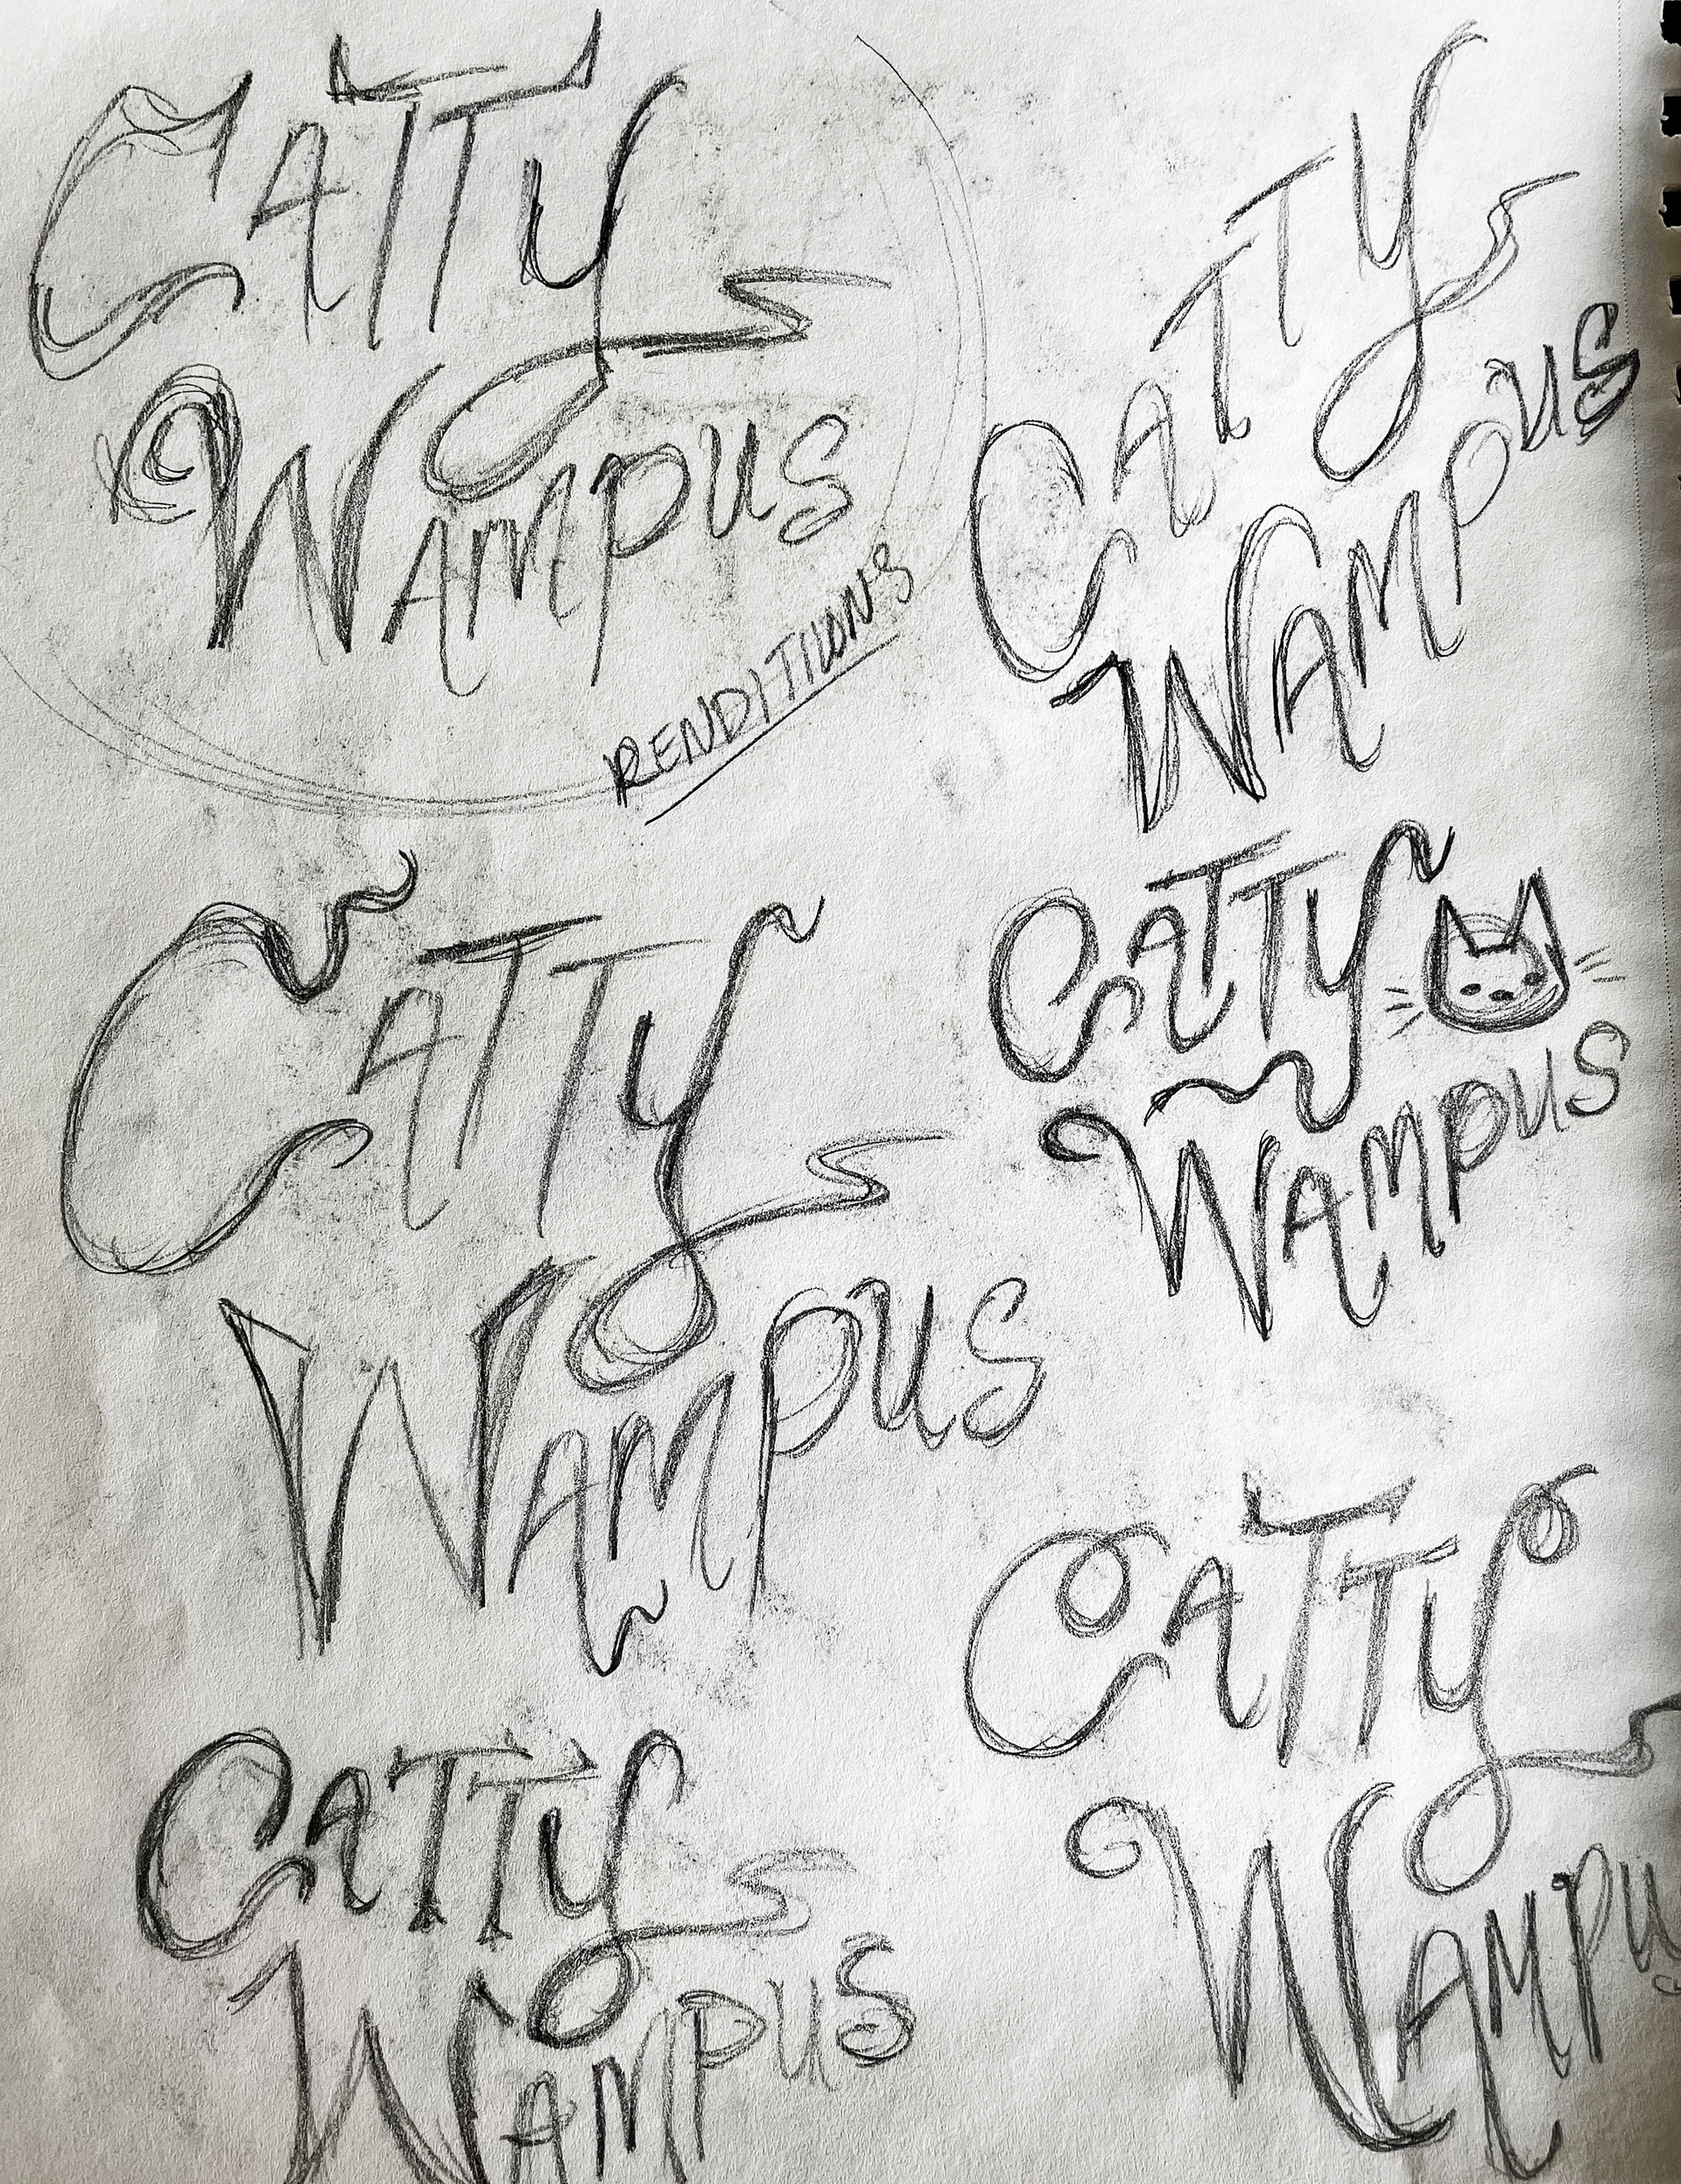 CATTY
WAMPUS
RENDITIONS
CATTY
WAMPUS
CATTY
WAMPUS
CATTY
WAMPUS
CATTY
WAMPUS
CATTY
WAMPU